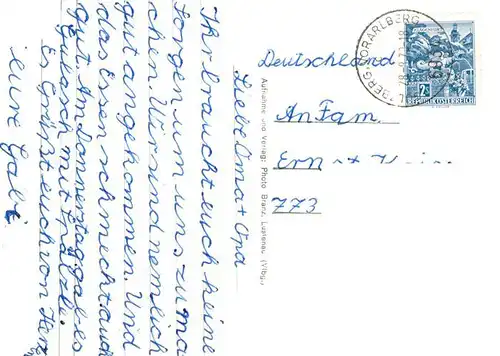 Liebe Oma + Opa
Ihr braucht euch keine
Sorgen um uns zu ma
chen. Wir sind nemlich
gut angekommen. Und
das Essen schmeckt auch
gut. Am Donnerstag gab es
Gulasch mit
Es Grüßt euch von Herz
eure Gabi
Deutschland
An Fam.
Ern
773
Aufnahme und Verlag: Photo Branz, Lustenau (Vlbg.)
VORARLBERG
REPUBLIK ÖSTERREICH